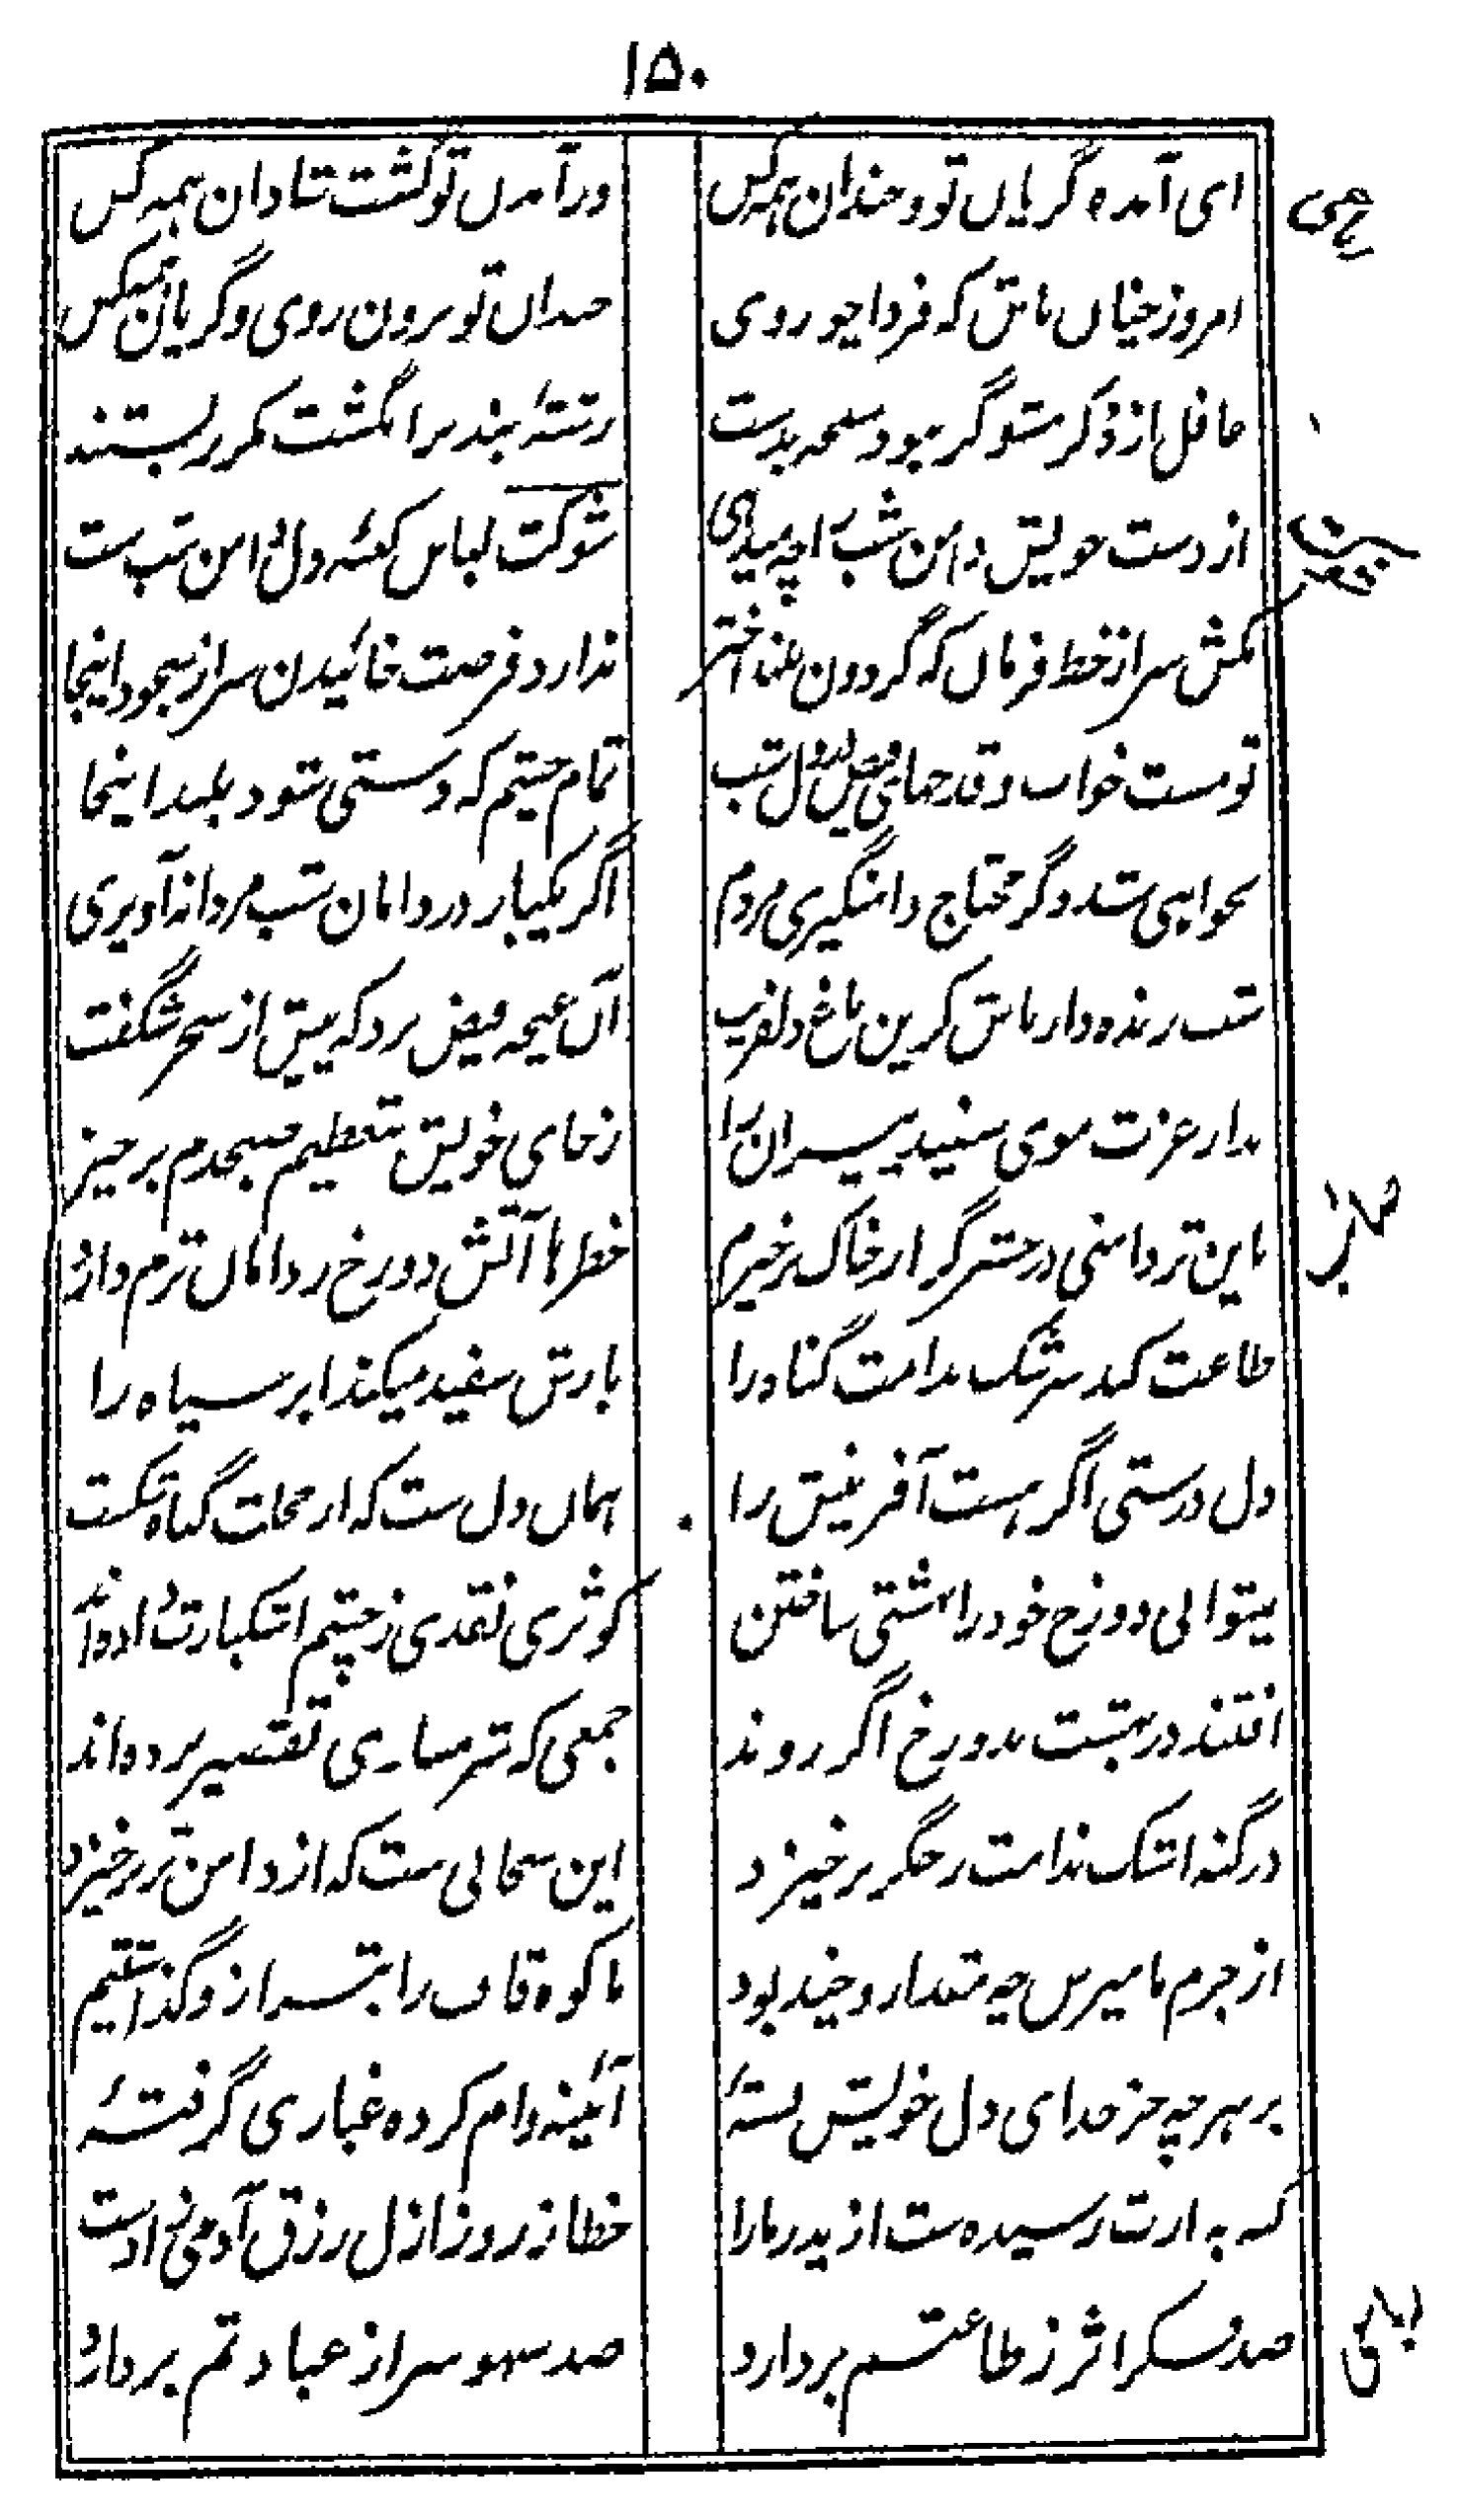 ۱۵۰
ای آمده گریاں تو و خندان همه کس
ور آمدں تو گشت شادان همه کس
امروز چناں باش که فردا چو روی
خنداں تو برون روی و گریان همه کس
غافل از ذکر مشو گر بود سبحه بدست
رشتهٔ بند بر انگشت مکرر بستند
از دست خویش دامن شب را چه میدهی
شوکت لباس کعبهٔ دل دامن شب ست
مکش سر از خط فرماں که گردون بلند اختر
ندارد فرصت خائیدن سر از سجود اینجا
تو مست خواب و قدحهای فیض در دل شب
تمام چشم که دستی شود بلند اینجا
نخواهی شد دگر محتاج دامنگیری مردم
اگر یکبار در دامان شب مردانه آویزی
شب زنده دار باش کزین باغ دلفریب
آں غنچه فیض برد که پیش از سحر شگفت
بدار عزت موی سفید پیران را
ز جای خویش بتعظیم صبحدم برخیز
باین تردامنی در حشر گر از خاک برخیزم
خطرها آتش دوزخ ز داماں ترم دارد
طاعت کند سرشک ندامت گناه را
بارش سفید میکند ابر سیاه را
دل درستی اگر هست آفرینش را
هماں دل ست که از خجلت گناه شکست
میتوانی دوزخ خود را بهشتی ساختن
کوثری نقدی ز چشم اشکبارت داده اند
افتند در بهشت بدوزخ اگر روند
جمعی که شرمساری تقصیر برده اند
در گنه اشک ندامت ز جگر برخیزد
این سحابی ست که از دامن تر برخیزد
از جرم ما مپرس چه مقدار و چند بود
ما کوه قاف را بترازو گذاشتیم
بر هرچه جز خدای دل خویش بستهٔ
آئینه وام کرده غباری گرفتهٔ
که به ارث رسیده ست از پدر ما را
خطا ز روز ازل رزق آدمی زادست
صد فسکر اثر ز طاعتم بردارد
صد سهو سر از عبادتم بردارد